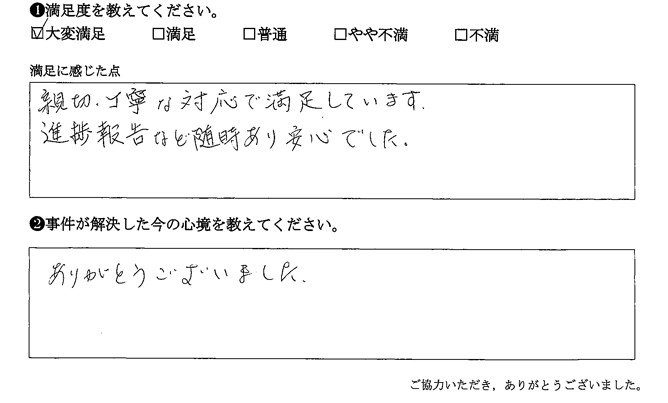 ❶満足度を教えてください。
☑大変満足 □満足 □普通 □やや不満 □不満
満足に感じた点
親切・丁寧な対応で満足しています.
進捗報告など随時あり安心でした。
❷事件が解決した今の心境を教えてください。
ありがとうございました.
ご協力いただき，ありがとうございました。